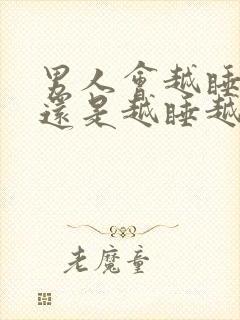 男人會越睡
還是越睡越
老魔童